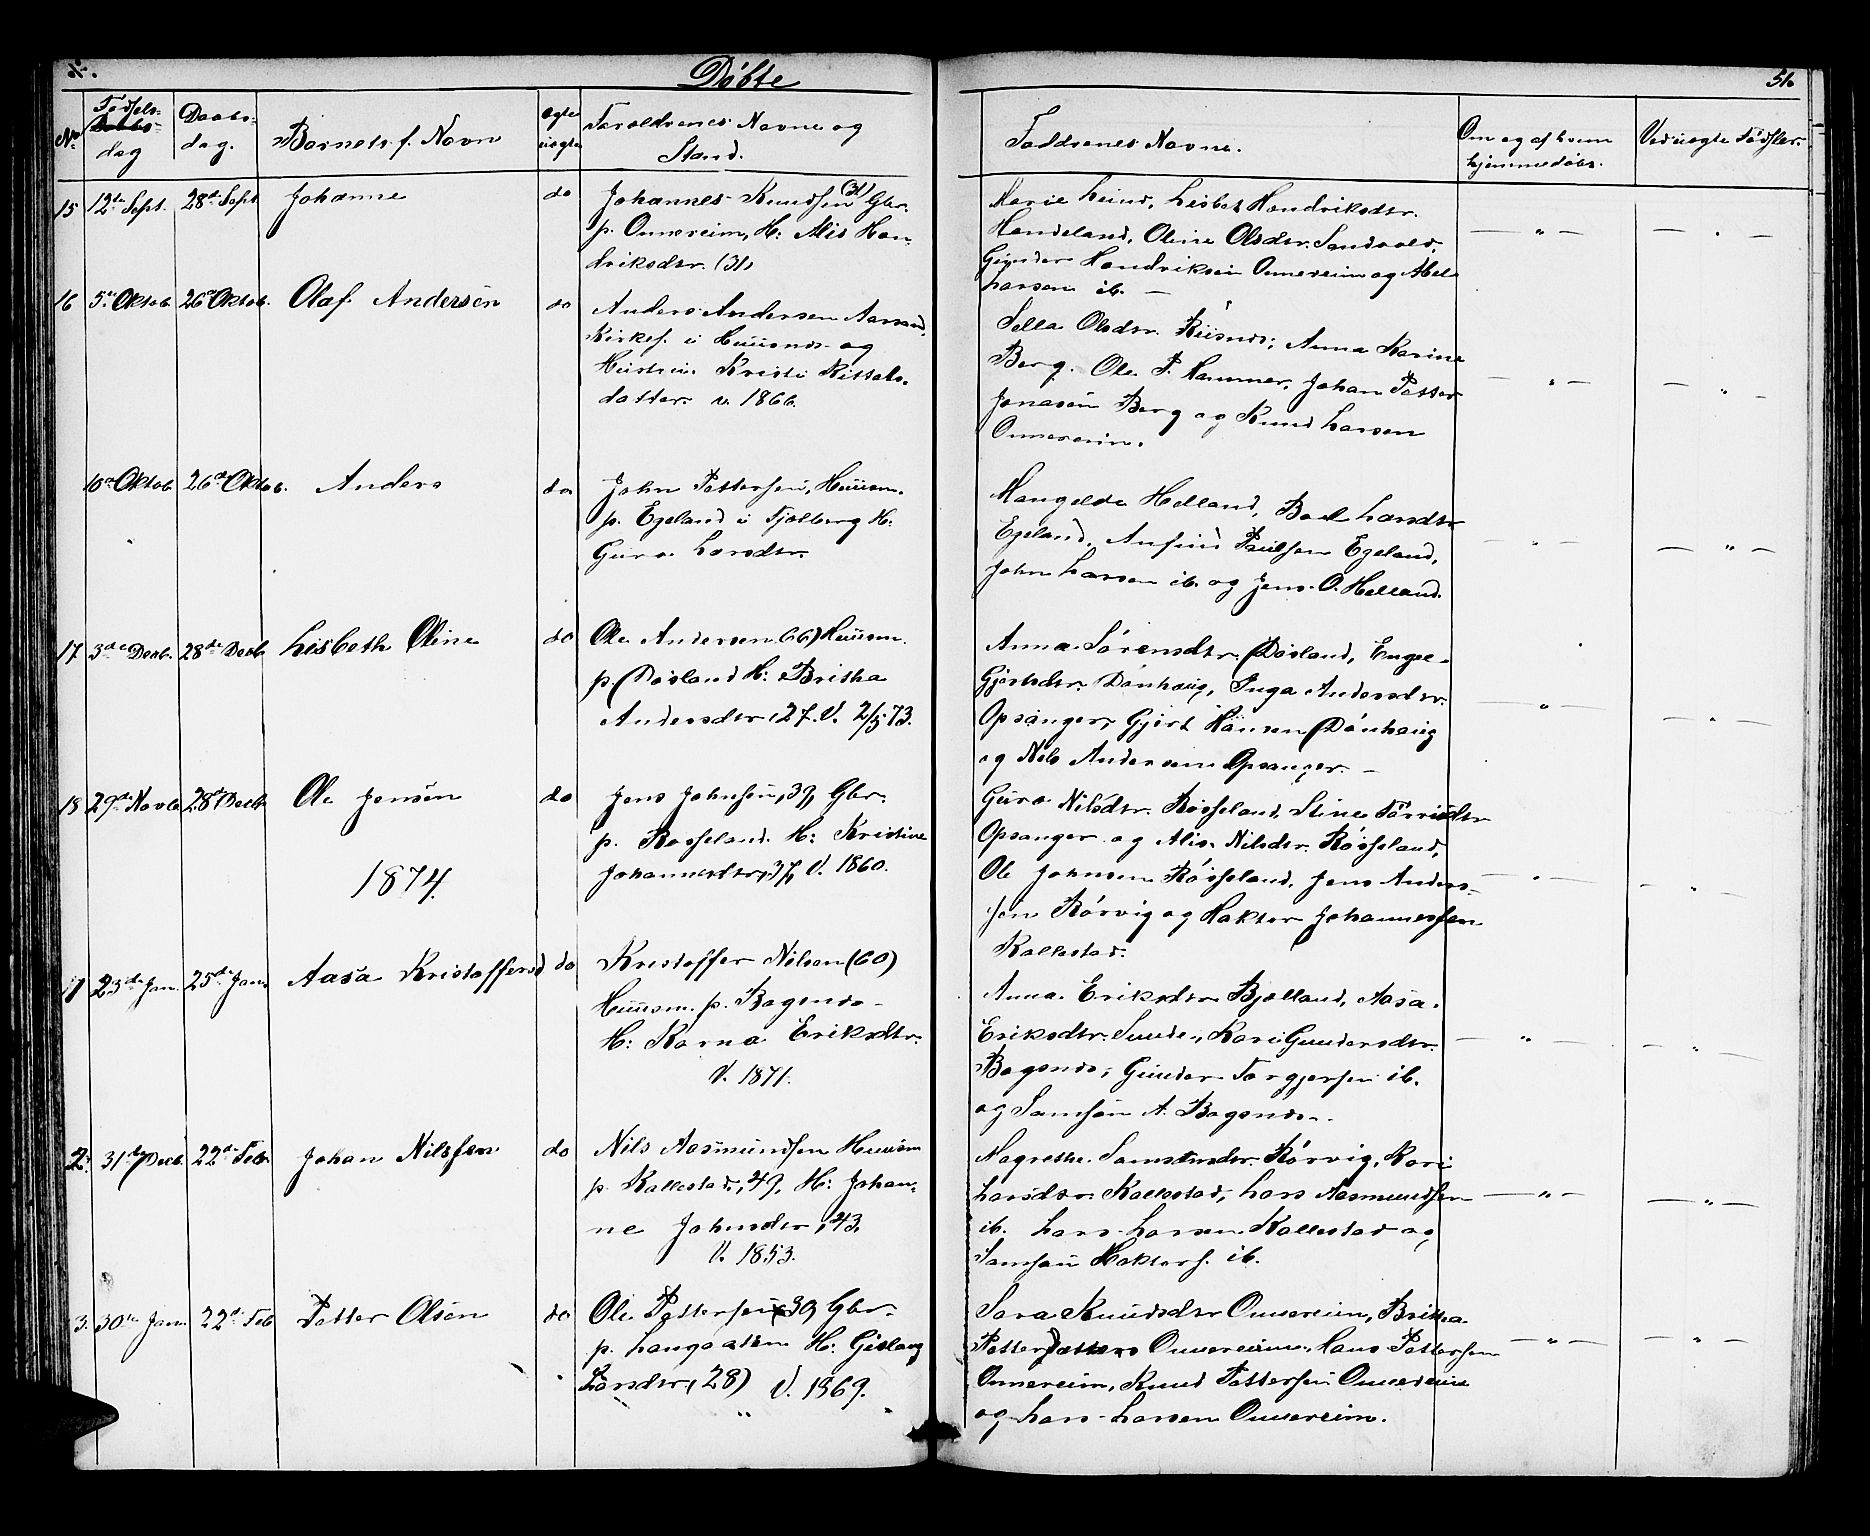 Døbte
51.
No
Fødsels-
dag
Daabs-
dag.
Barnets f. Navn
ægte
uægte
Foreldrenes Navne og
Stand.
Faddrenes Navne.
Om og af hvem
hjemmedøbt.
Ved uægte Fødsler.
15 12te Sept. 28de Sept Johanne do Johannes Knudsen (31) Gbr.
p. Onnereim, H: Alis Hen-
driksdtr. (31)
Marie Lund, Lisbet Hendriksdtr.
Handeland, Oline Olsdtr. Sandvold,
Gunder Hendriksen Onnereim og Abel
Larsen ib. —
16 5te Oktob. 26de Oktob. Olaf Andersen do Anders Andersen Aarsand,
Kirkes. i Huusnæs og
Hustru Kristi Kittels-
datter. v. 1866.
Sella Olsdtr. Riisnes, Anna Karine
Berg. Ole P. Hammer, Johan Petter
Jonasen Berg og Knud Larsen
Onnereim.
10de Oktob. 26de Oktob. Anders do John Pettersen, Huusm.
p. Egeland i Fjelberg H:
Guro Larsdtr.
Mangelda Helland, Boel Larsdtr
Egeland, Anfind Paulsen Egeland,
John Larsen ib. og Jens O. Helland.
17 3die Decb. 28de Decb Lisbeth Oline do Ole Andersen (66) Huusm.
p. Døsland H: Britha
Andersdtr, 27. V. 2/5 73.
Anna Sørensdtr. Døsland, Engel
Gjertsdtr. Dønhaug, Inga Andersdtr.
Opsanger, Gjert Hansen Dønhaug
og Nils Andersen Opsanger. —
18 29de Novb 28de Decb Ole Jensen do Jens Johnsen, 39, Gbr.
p. Røsseland. H: Kristine
Johannesdtr, 37, V. 1860.
Guro Nilsdtr. Røsseland, Stine Tørrisdtr
Opsanger og Alis Nilsdtr. Røsseland,
Ole Johnsen Røsseland, Jens Anders-
sen Rørvig og Haktor Johannessen
Kallestad.
1874.
1 23de Jan. 25de Jan. Aasa Kristoffersd do Kristoffer Nilsen (60)
Huusm. p. Bogsnes
H: Karna Eriksdtr.
V. 1871.
Anna Eriksdtr Bjelland, Aasa
Eriksdtr. Sunde, Kari Gundersdtr.
Bogsnes, Gunder Torgjersen ib.
og Samson A. Bogsnes.
2. 31te Decb. 22de Feb. Johan Nilssen do Nils Aasmundsen Huusm
p. Kallestad, 49, H: Johan-
ne Johnsdtr, 43.
V. 1853.
Magrethe Samsonsdtr. Rørvig, Kari
Larsdtr. Kallestad, Lars Aasmundsen
ib. Lars Larsen Kallestad og
Samson Haktors. ib.
3. 30te Jan. 22de Feb Petter Olsen do Ole Pettersen 30, Gbr.
p. Langaaten H: Gislaug
Larsdtr, (28) V. 1869.
Sara Knudsdtr Onnereim, Britha
Pettersdatter Onnereim, Hans Pettersen
Onnereim, Knud Pettersen Onnereim
og Lars Larsen Onnereim.